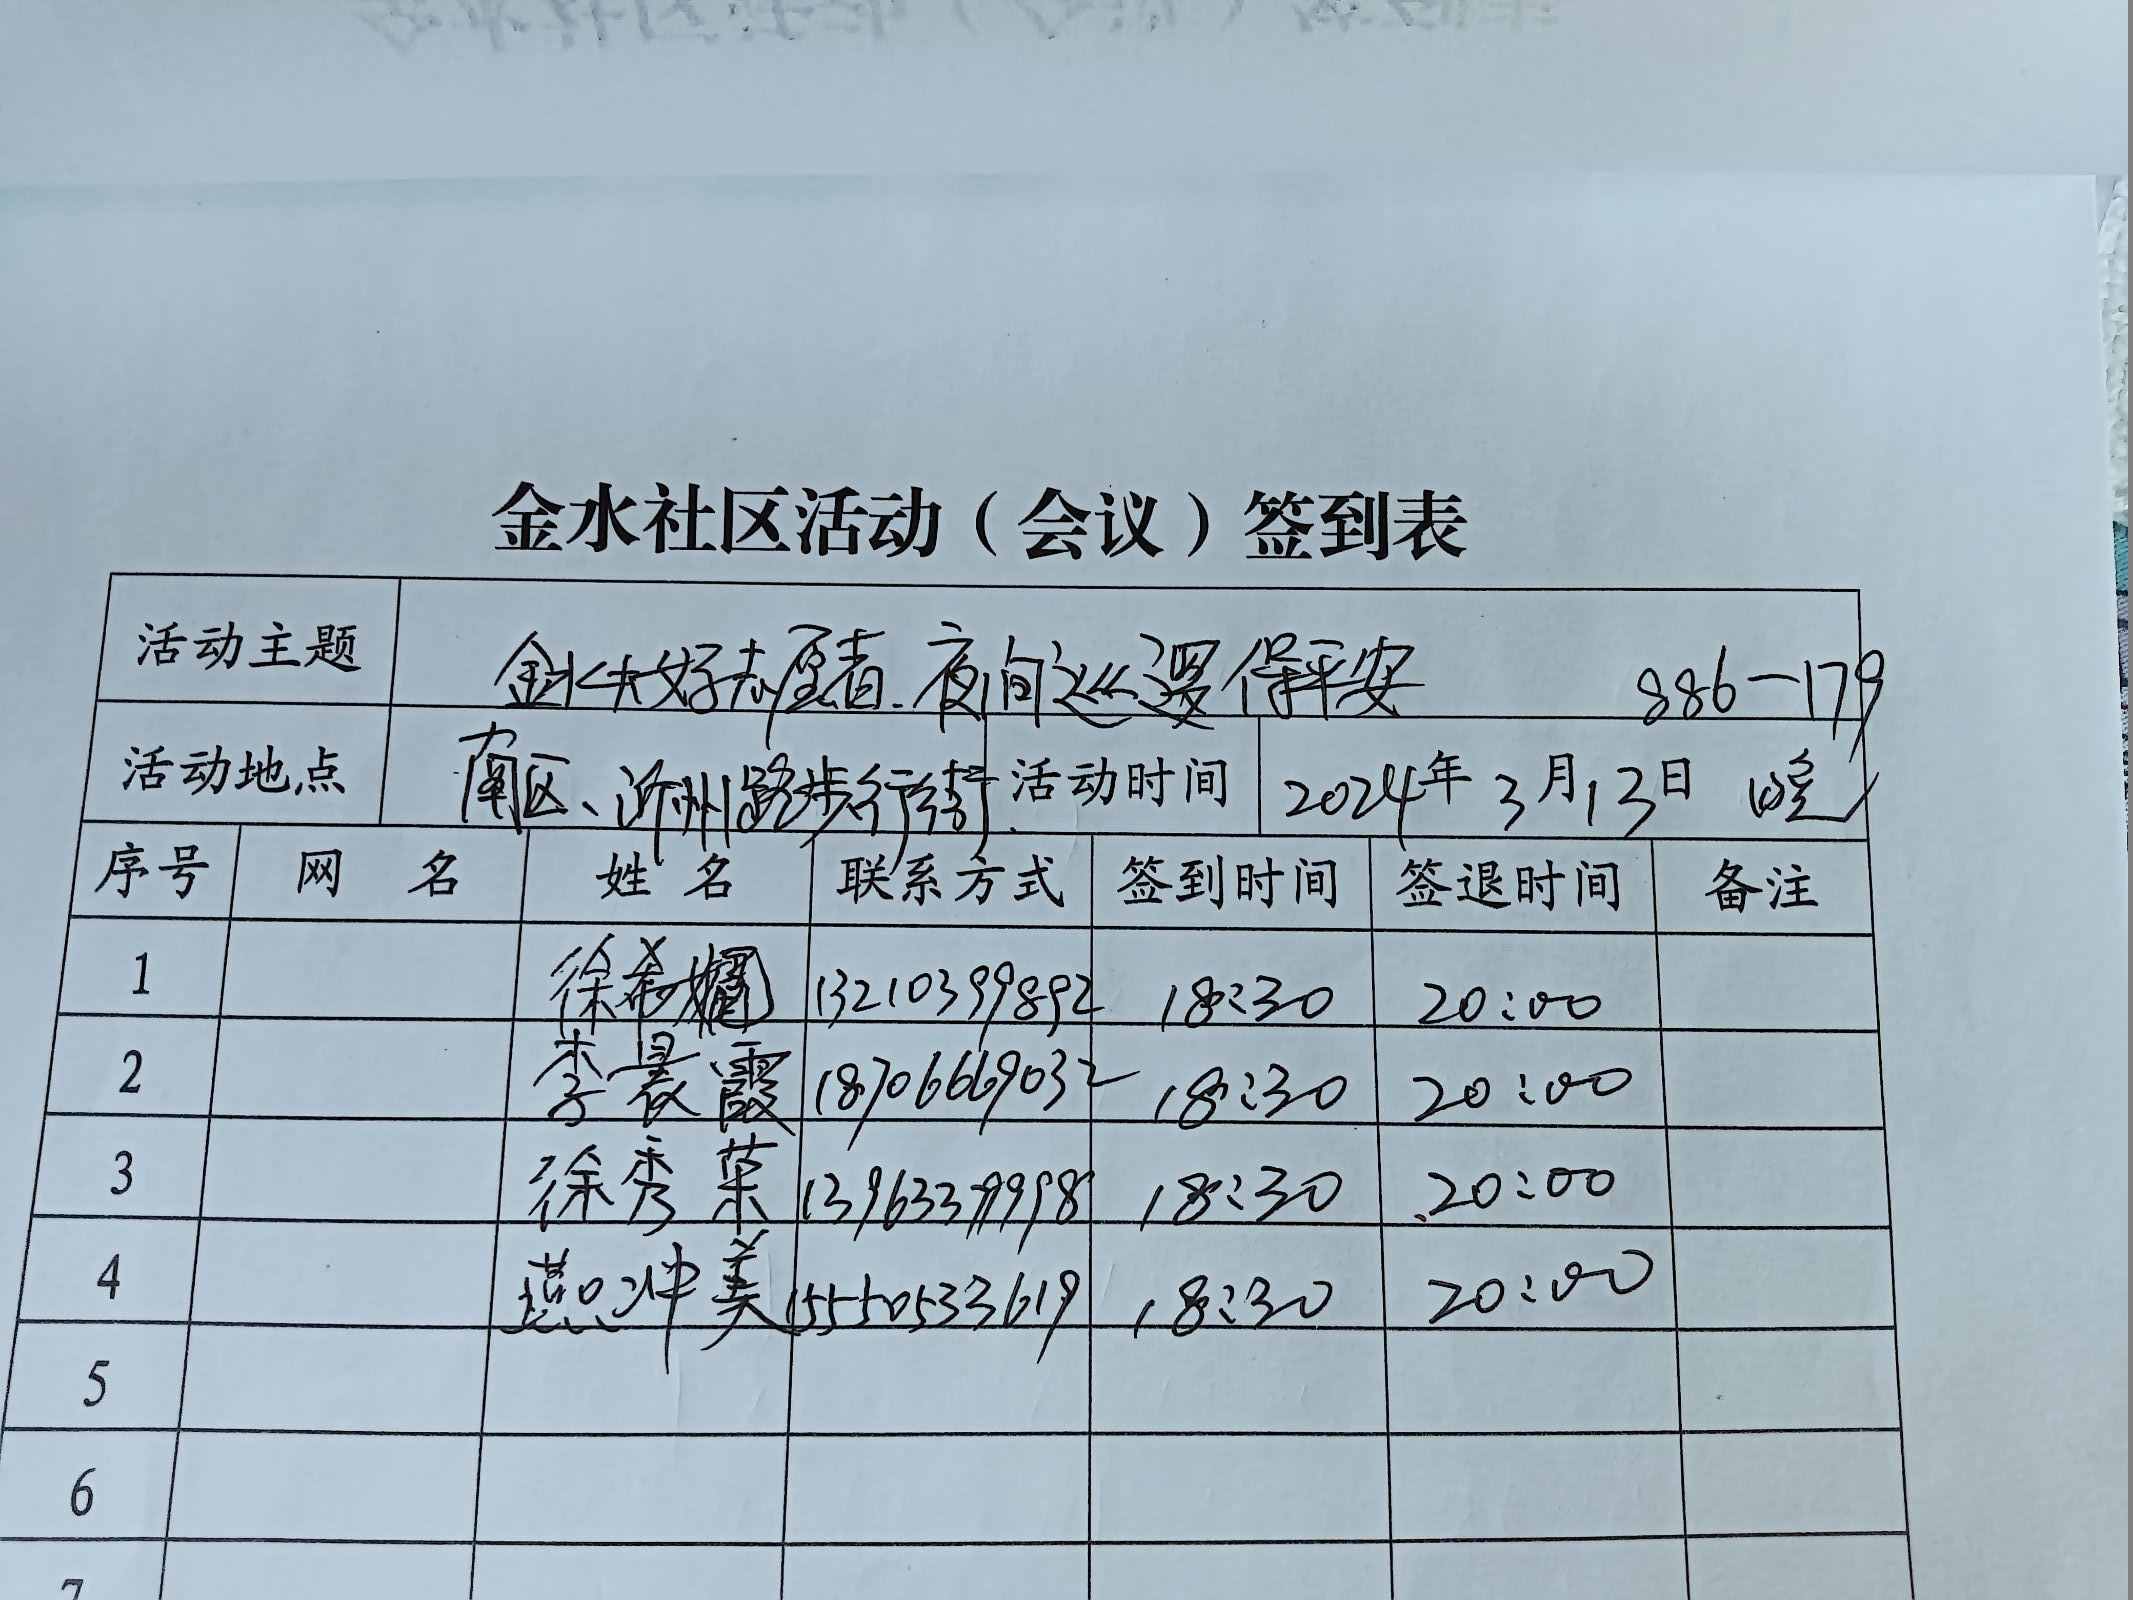 金水社区活动（会议）签到表
活动主题 金水大好志愿者.夜间巡逻保平安 886-179
活动地点 南区、沂州路步行街 活动时间 2024年3月13日 晚
序号 网 名 姓 名 联系方式 签到时间 签退时间 备注
1 徐希 13210399892 18:30 20:00
2 李晨霞 18706669032 18:30 20:00
3 徐秀菜 13963399998 18:30 20:00
4 冲美 15550533619 18:30 20:00
5
6
7